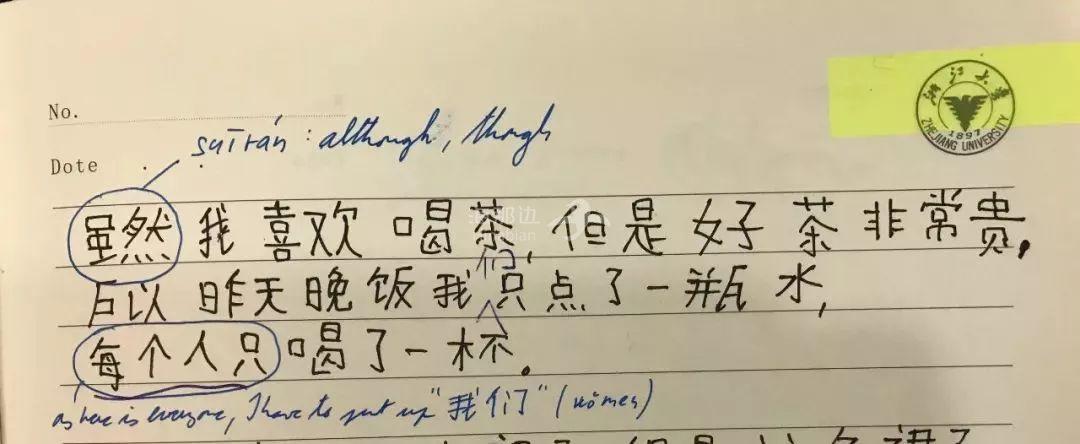 No.
浙江大学
ZHEJIANG UNIVERSITY
1897
suīrán : although, though
Dote
虽然我喜欢喝茶,但是好茶非常贵,
们
户以昨天晚饭我只点了一瓶水,
每个人只喝了一杯.
as here is everyone, I have to put up "我们" (wǒmen)